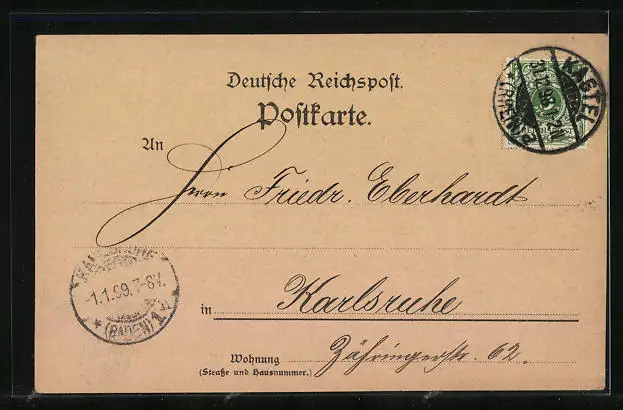 Deutsche Reichspost.
Postkarte.
An
Herrn Friedr. Eberhardt
in Karlsruhe
Wohnung Zähringerstr. 62.
(Straße und Hausnummer.)
KASTEL
31.12.98.
KARLSRUHE
1.1.99. 7-8V.
(BADEN) 1